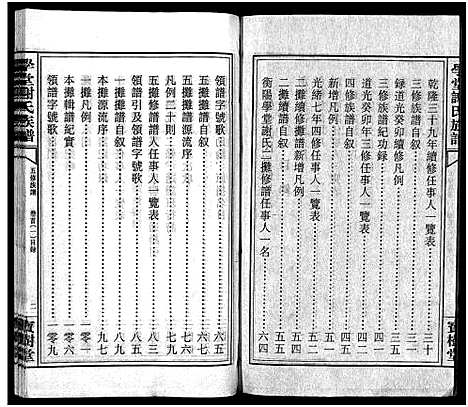 學堂謝氏族譜
乾隆三十九年續修任事人一覽表 三十
三修續增凡例 三三
錄道光癸卯三修凡例 三五
四修族譜紀功録 四一
道光癸卯年三修任事人一覽表 四四
四修族譜自叙 四五
新增凡例 五一
光緒七年四修任事人一覽表
二攤續譜自叙
二攤續修攤譜新增凡例
衡陽學堂謝氏二攤修譜任事人一名 六四
寶樹堂
學堂謝氏族譜
五修族譜 卷首(一)目録 二
領譜字號歌 六五
五攤續譜自叙 六七
五攤譜源流序 七六
凡例二十則 七九
五攤修譜譜人任事人一覽表 八三
五修引及領譜字號歌
一攤續譜自叙
本攤源流序 九七
一攤凡例 一零一
本攤輯譜紀實 一零六
領譜字號歌 一零九
寶樹堂